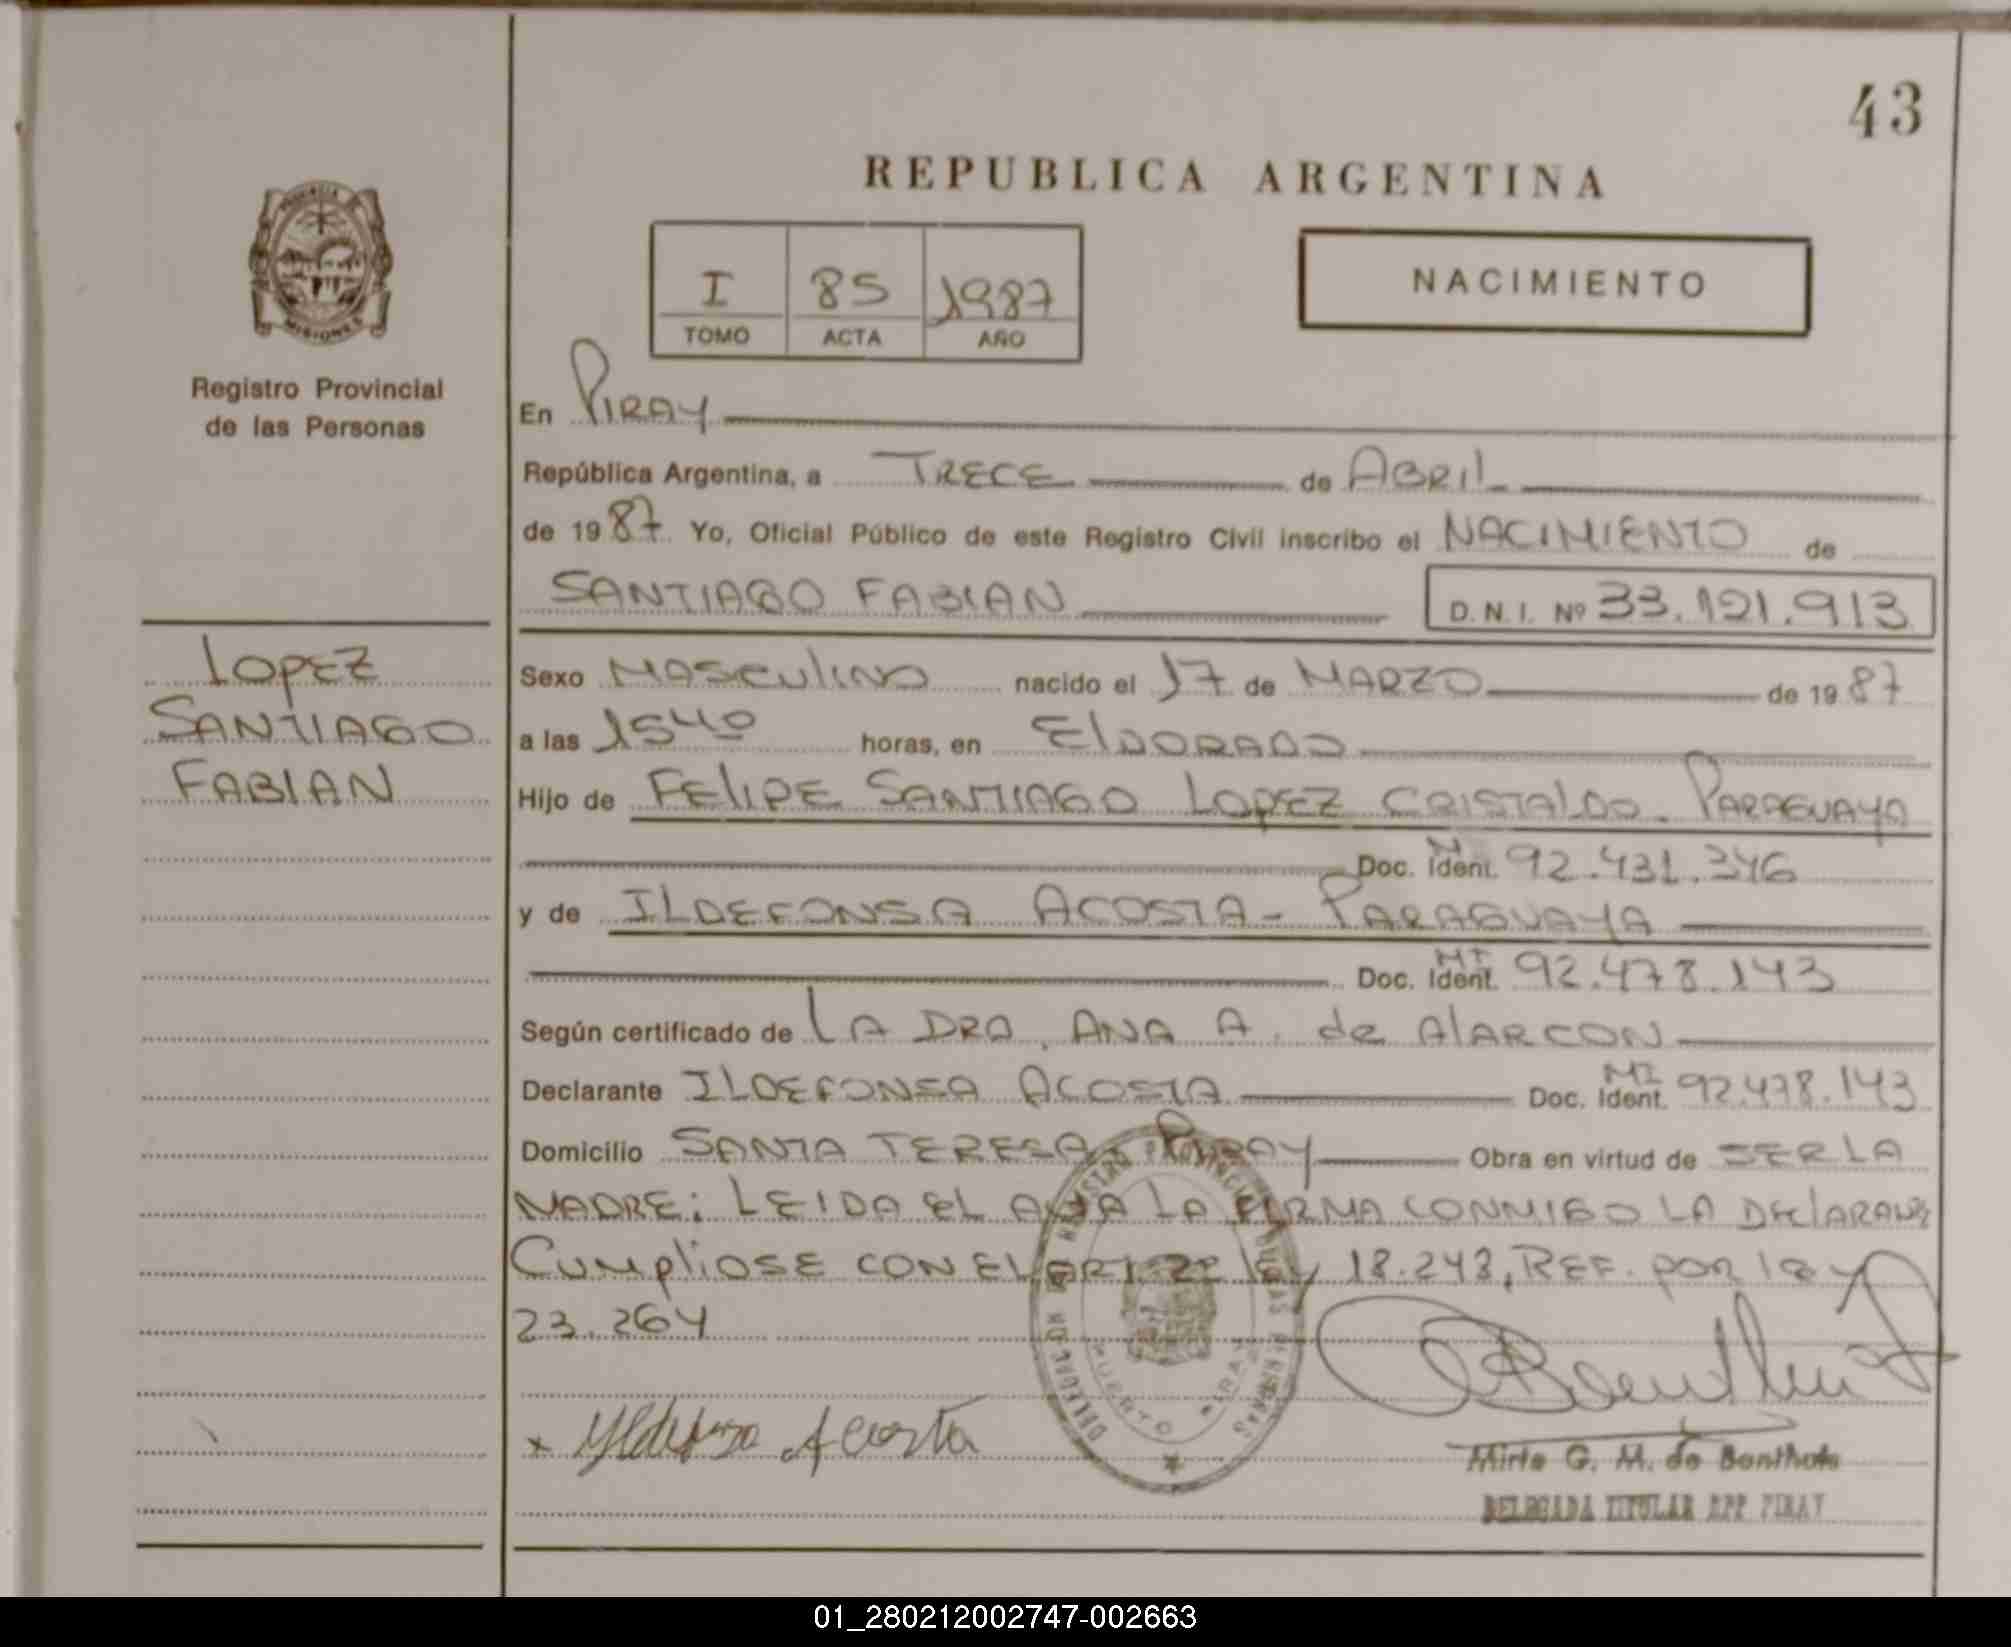 43
REPUBLICA ARGENTINA
PROVINCIA DE
MISIONES
Registro Provincial
de las Personas
I 85 1987
TOMO ACTA AÑO
NACIMIENTO
En PIRAY
República Argentina, a TRECE de ABRIL
de 1987. Yo, Oficial Público de este Registro Civil inscribo el NACIMIENTO de
SANTIAGO FABIAN D.N.I. Nº 33.121.913
LOPEZ
SANTIAGO
FABIAN
Sexo MASCULINO nacido el 17 de MARZO de 1987
a las 1540 horas, en ELDORADO
Hijo de FELIPE SANTIAGO LOPEZ CRISTALDO. PARAGUAYO
Doc. Ident. 92.431.346
y de ILDEFONSA ACOSTA - PARAGUAYA
Doc. Ident. MI 92.478.143
Según certificado de LA DRA. ANA A. de ALARCON
Declarante ILDEFONSA ACOSTA Doc. Ident. MI 92.478.143
Domicilio SANTA TERESA PIRAY Obra en virtud de SER LA
MADRE; LEIDA EL ACTA LA FIRMA CONMIGO LA DECLARANTE
CUMPLIOSE CON EL ART 2º ley 18.248, REF. POR ley
23.264
x Ildefonsa Acosta
DELEGACION REGISTRO PROVINCIAL DE LAS PERSONAS
PUERTO PIRAY
Mirta G. M. de
DELEGADA TITULAR RPP PIRAY
01_280212002747-002663